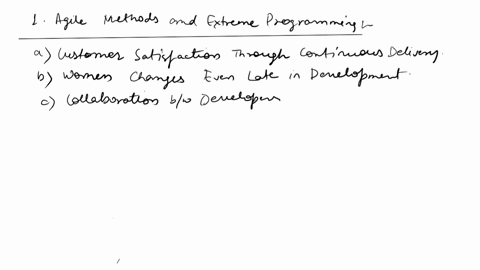 1. Agile Methods and Extreme Programming
a) Customer Satisfaction Through Continuous Delivery.
b) Changes Even Late in Development.
c) Collaboration b/w Developers